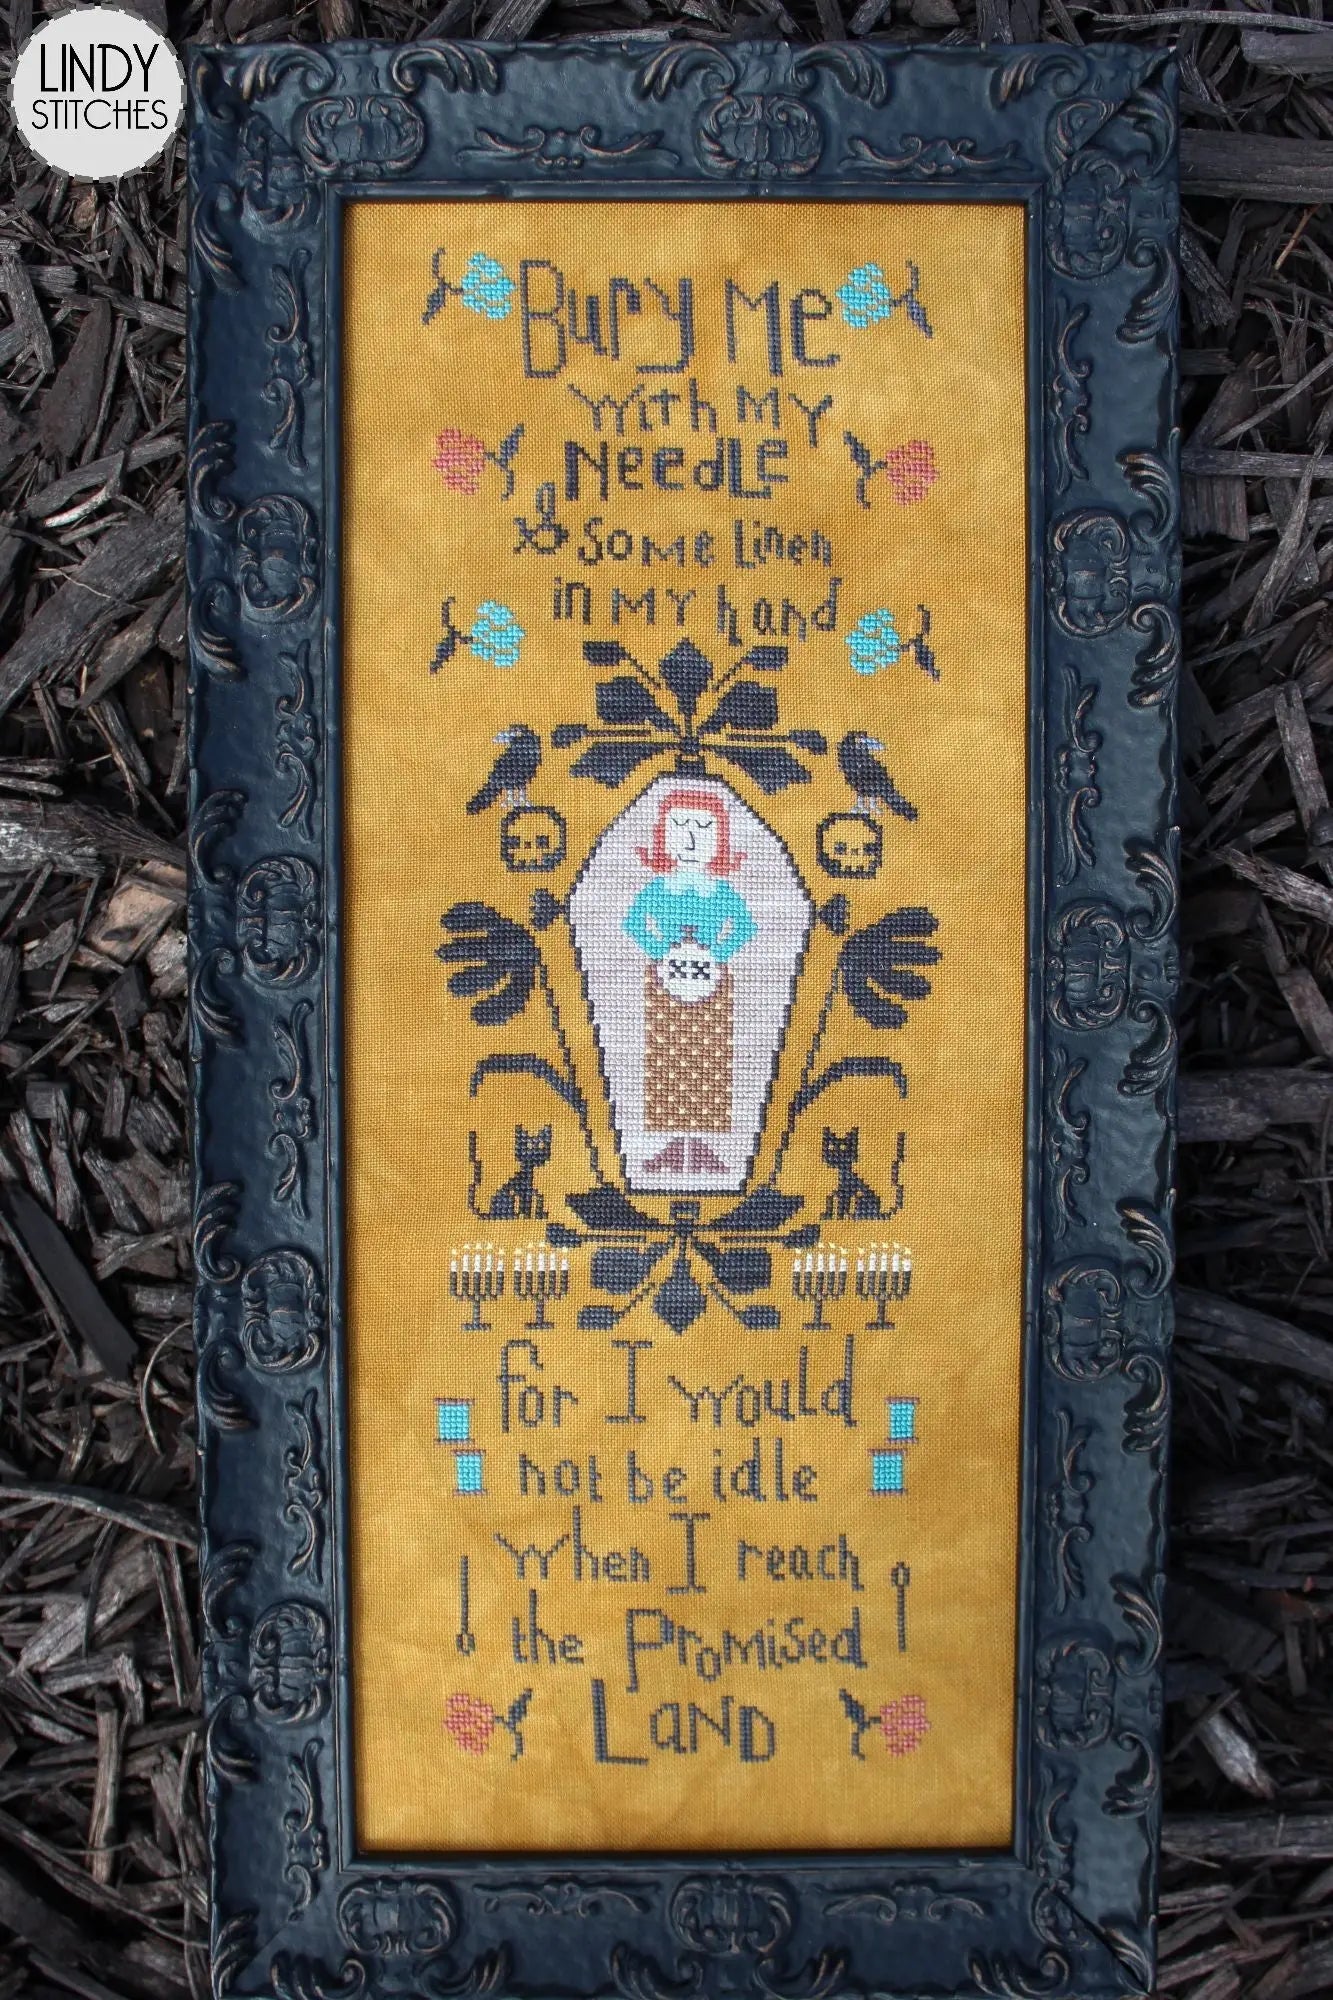 LINDY
STITCHES
Bury Me
with MY
NeedLe
& SoMe Linen
in MY hand
xx
for I would
not be idle
when I reach
the PRoMiSed
LaND